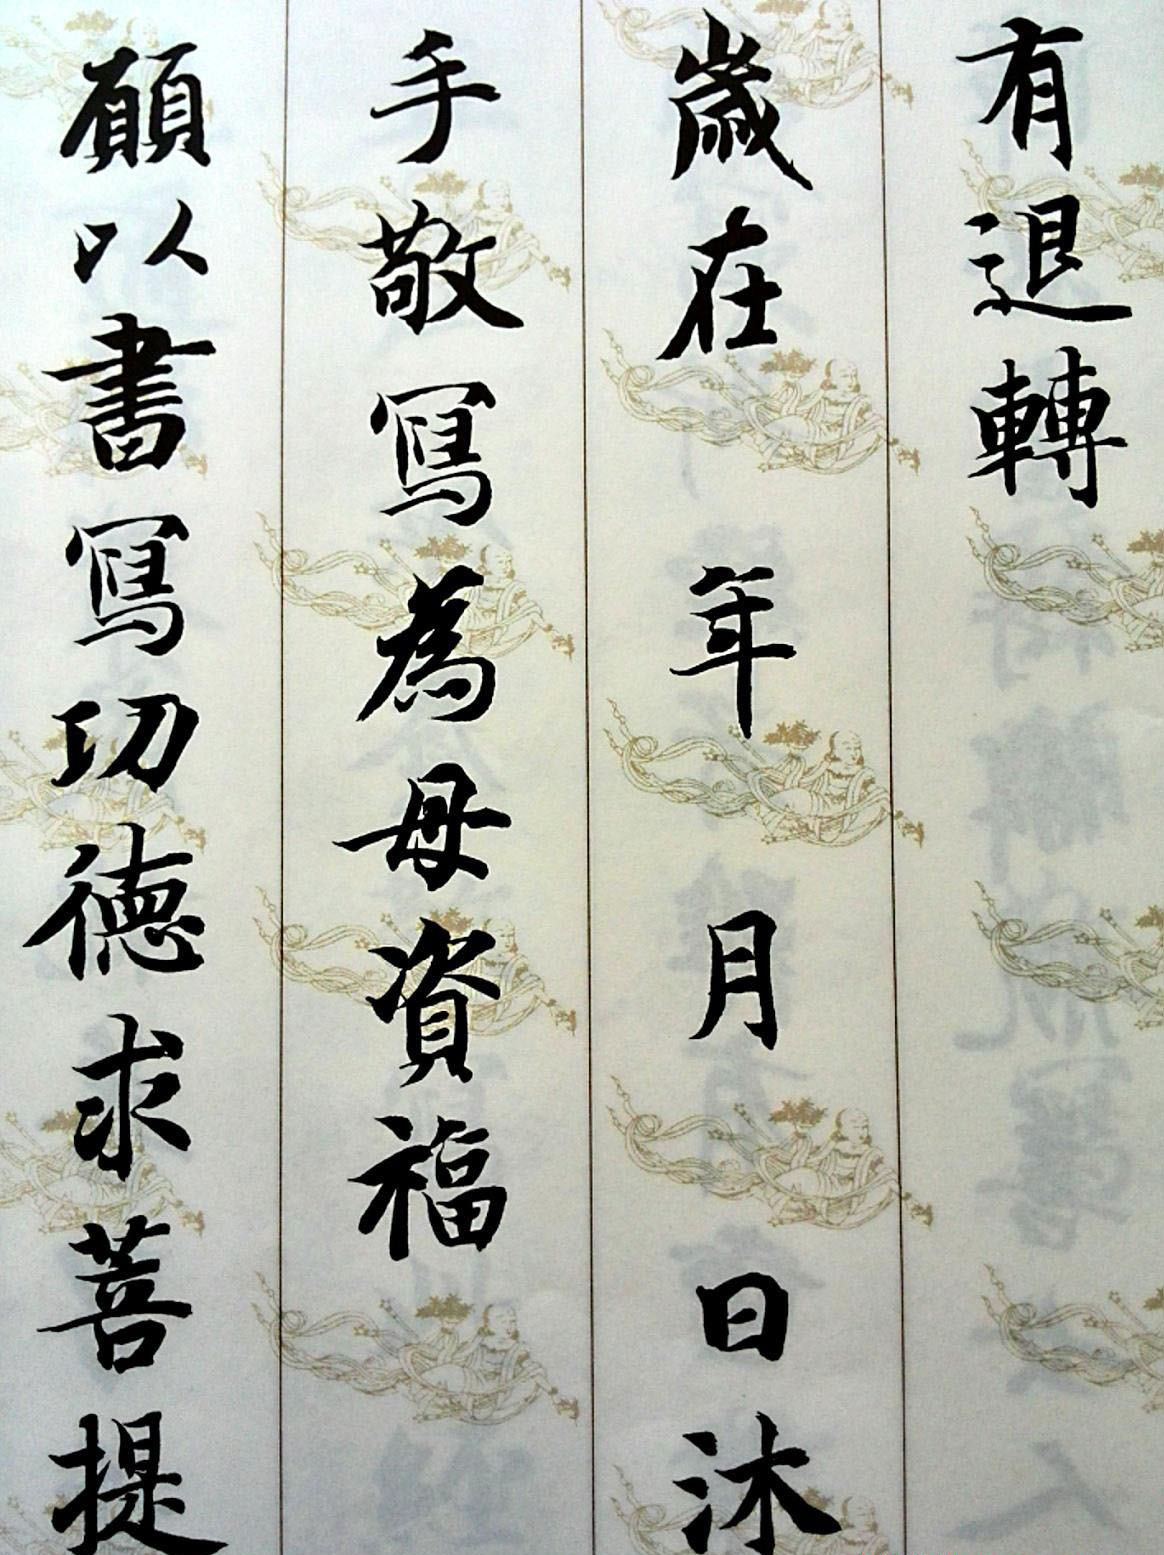 有退轉
歲在 年 月 日沐
手敬寫為母資福
願以書寫功德求菩提